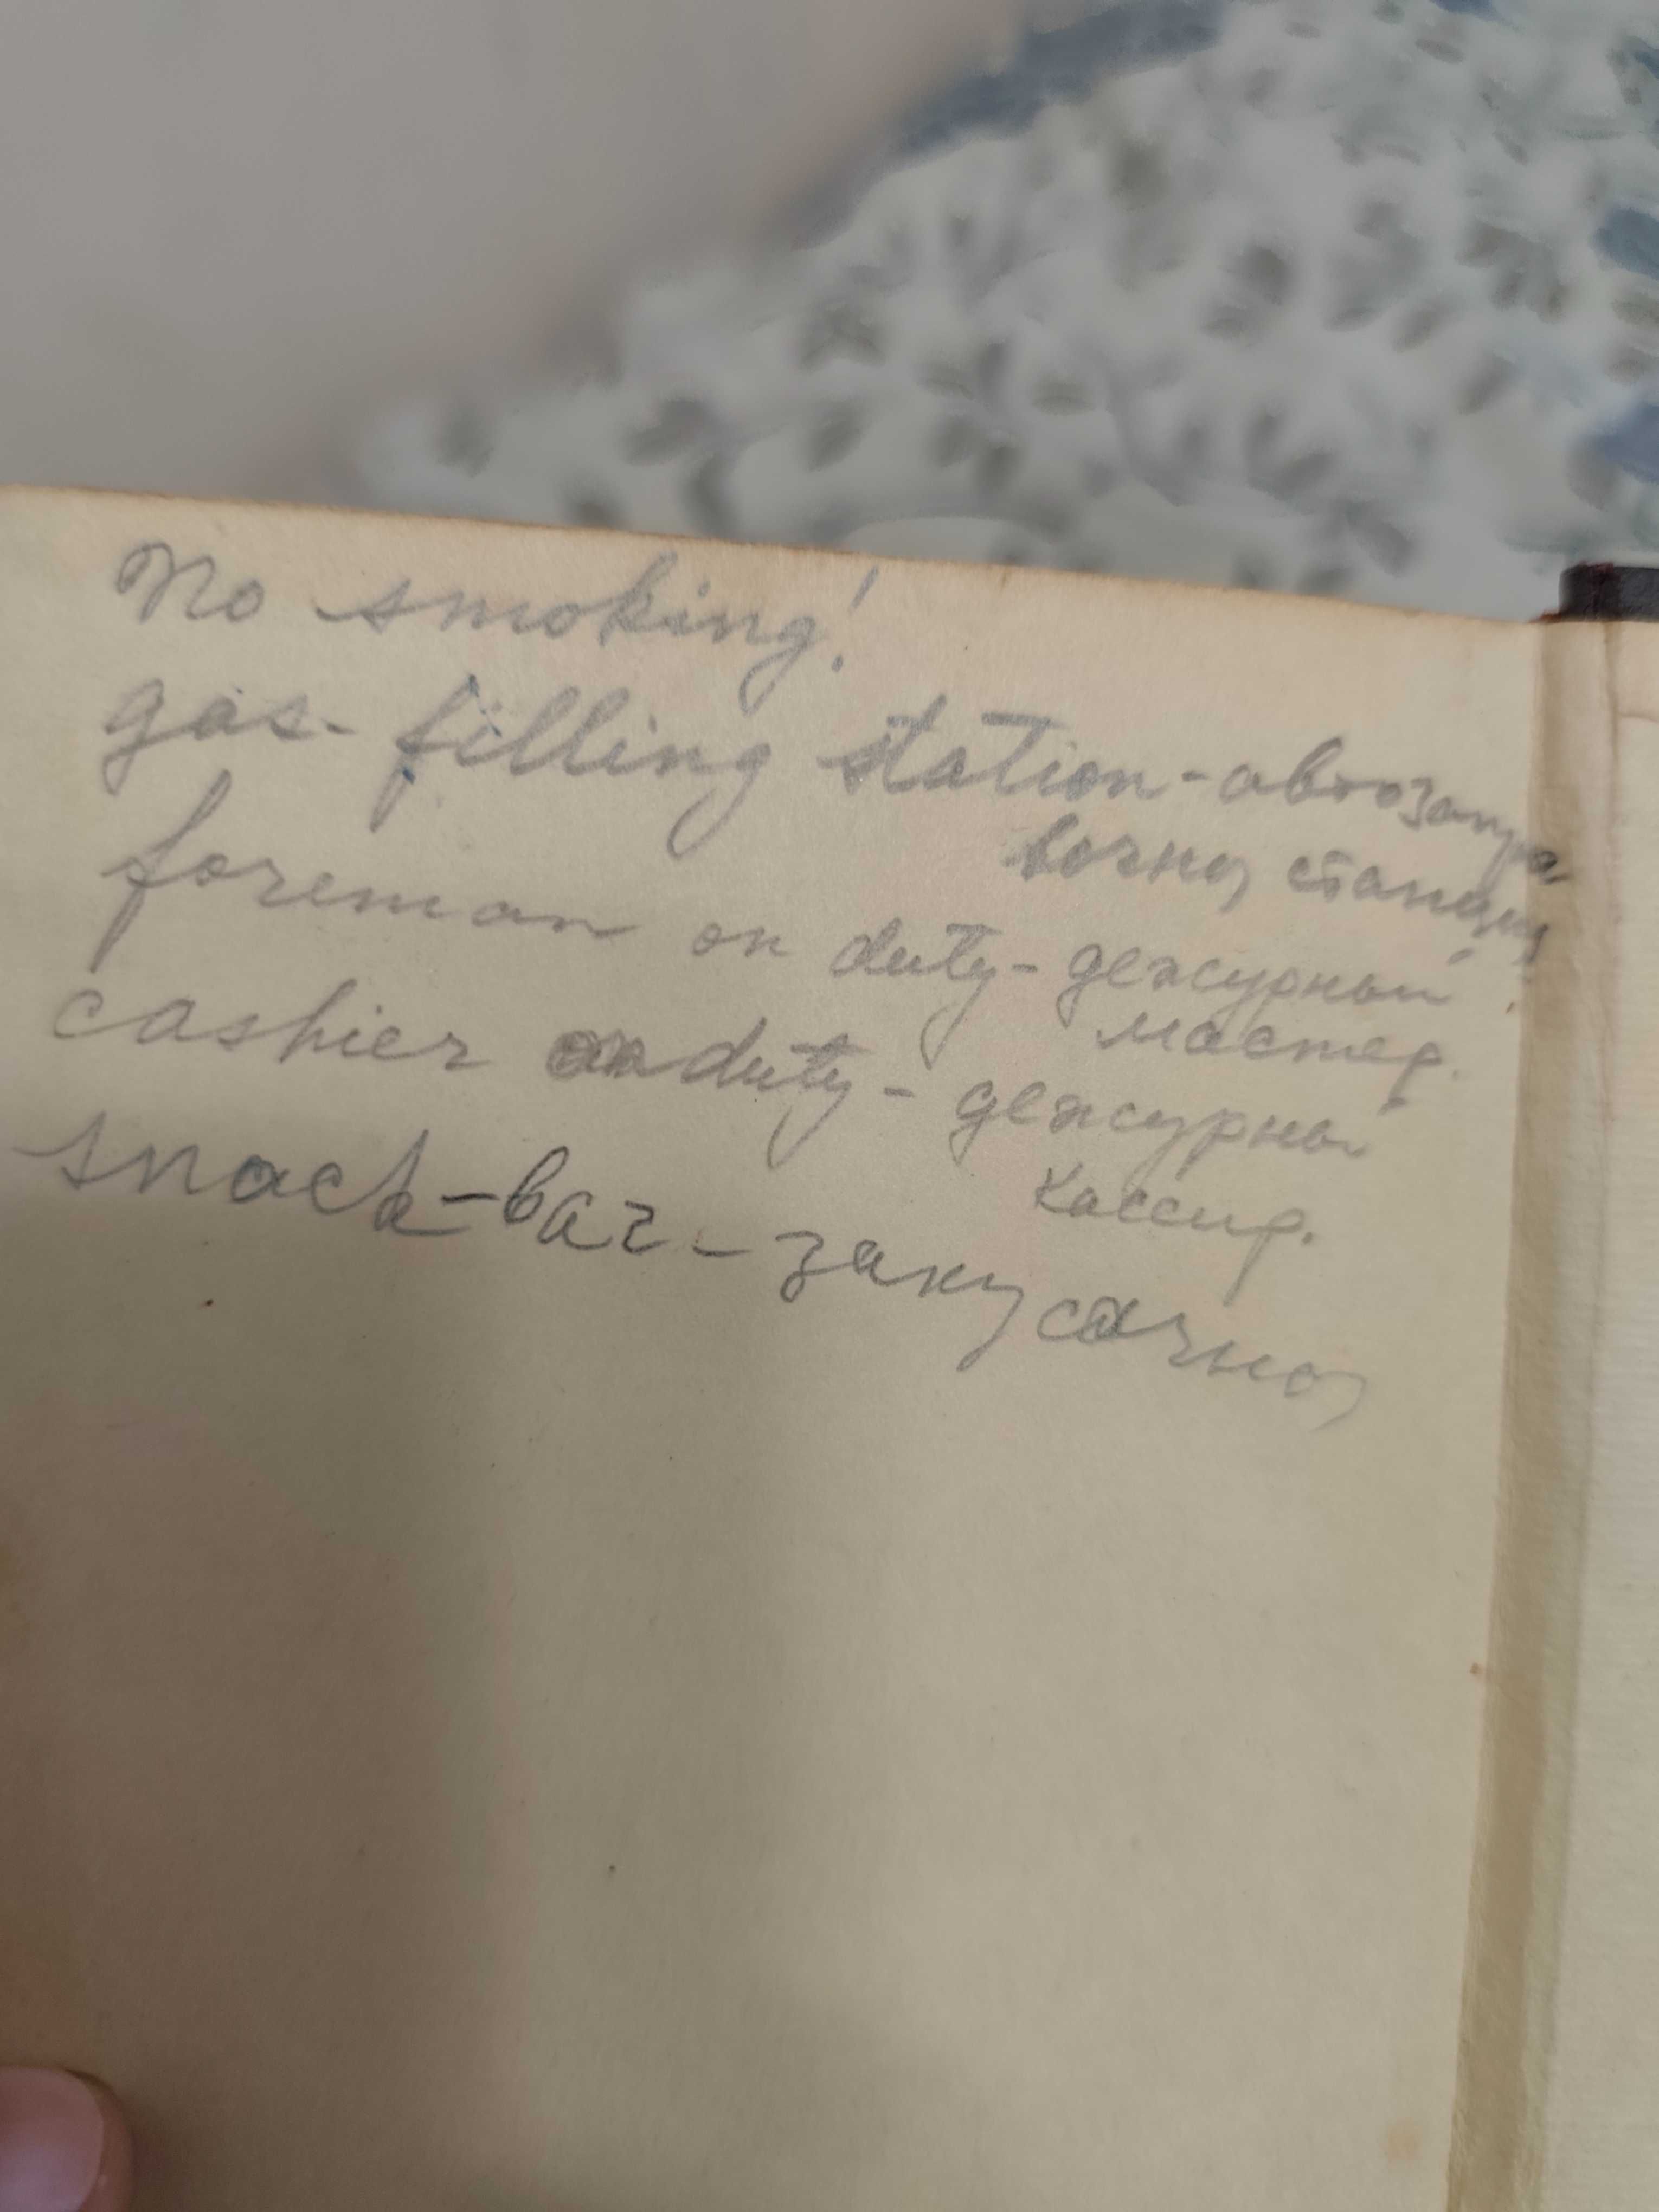 No smoking!
gas-filling station - автозапра-
вочная станция
foreman on duty - дежурный
мастер.
cashier on duty - дежурный
кассир.
snack-bar - закусочная